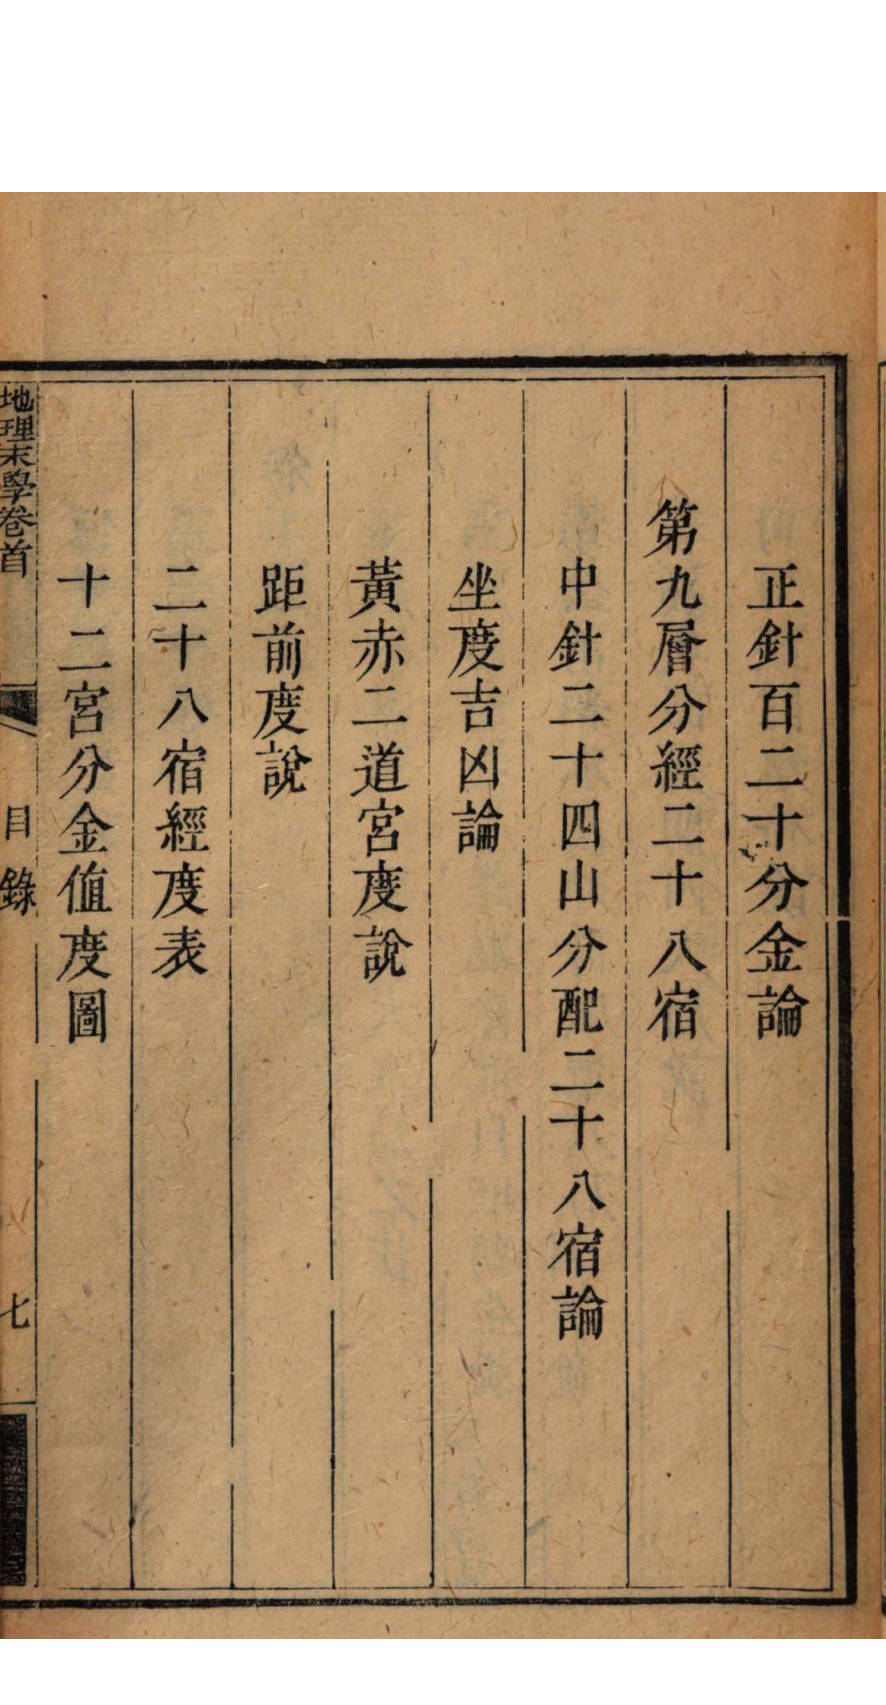 正針百二十分金論
第九層分經二十八宿
中針二十四山分配二十八宿論
坐度吉凶論
黃赤二道宮度說
距前度說
二十八宿經度表
十二宮分金值度圖
地理末學卷首
目錄
七